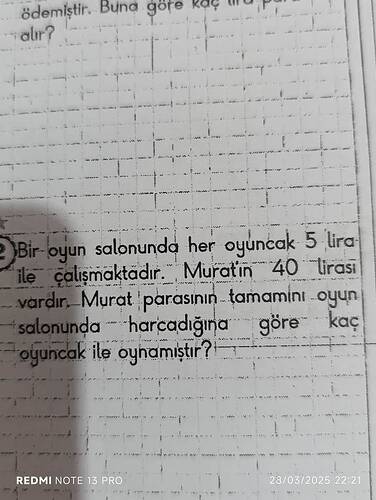 ödemiştir. Buna göre kaç lira para
alır?
2 Bir oyun salonunda her oyuncak 5 lira
ile çalışmaktadır. Murat'ın 40 lirası
vardır. Murat parasının tamamını oyun
salonunda harcadığına göre kaç
oyuncak ile oynamıştır?
REDMI NOTE 13 PRO
28/03/2025 22:21